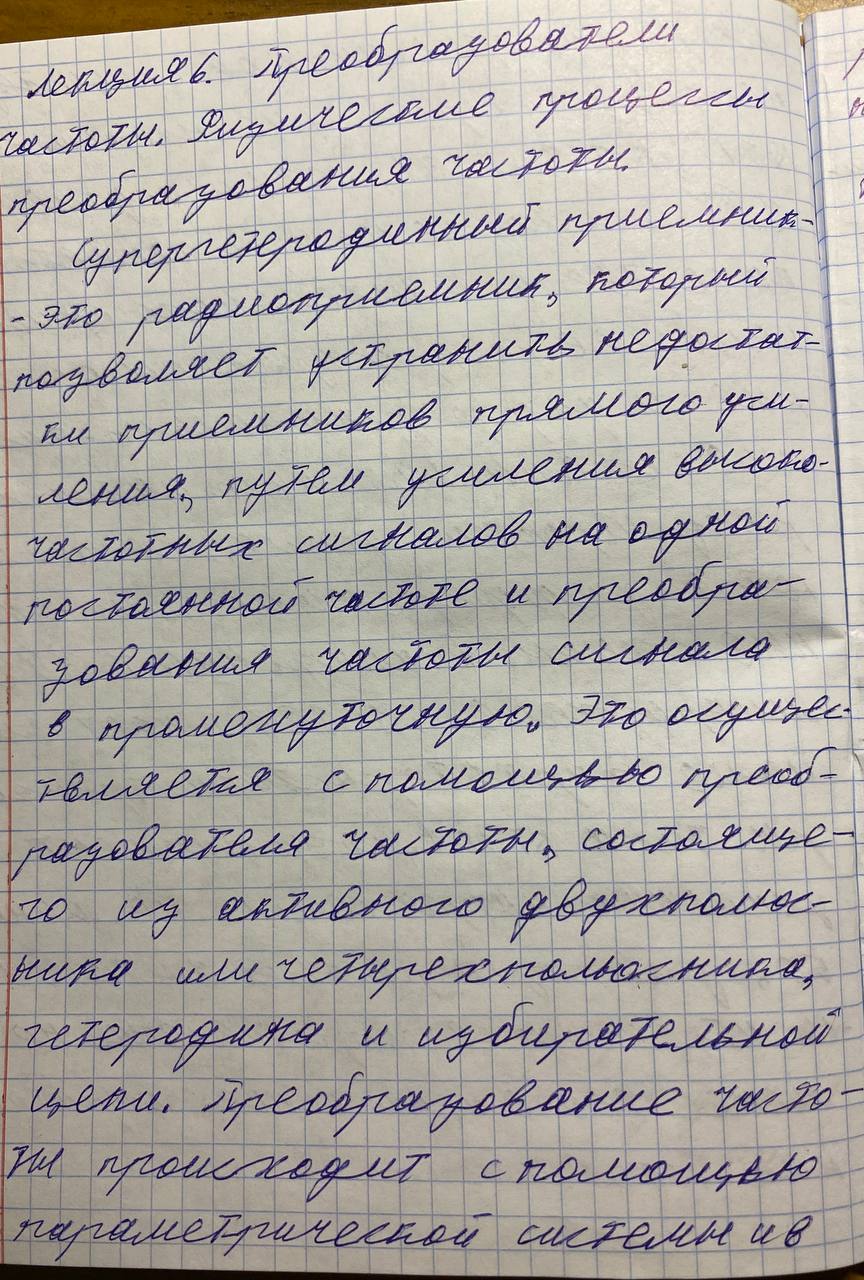 Лекция 6. Преобразователи
частоты. Физические процессы
преобразования частоты.
Супергетеродинный приемник-
- это радиоприемник, который
позволяет устранить недостат-
ки приемников прямого уси-
ления, путем усиления высоко-
частотных сигналов на одной
постоянной частоте и преобра-
зования частоты сигнала
в промежуточную. Это осущес-
твляется с помощью преоб-
разователя частоты, состояще-
го из активного двухполюс-
ника или четырехполюсника,
гетеродина и избирательной
цепи. Преобразование часто-
ты происходит с помощью
параметрической системы и в